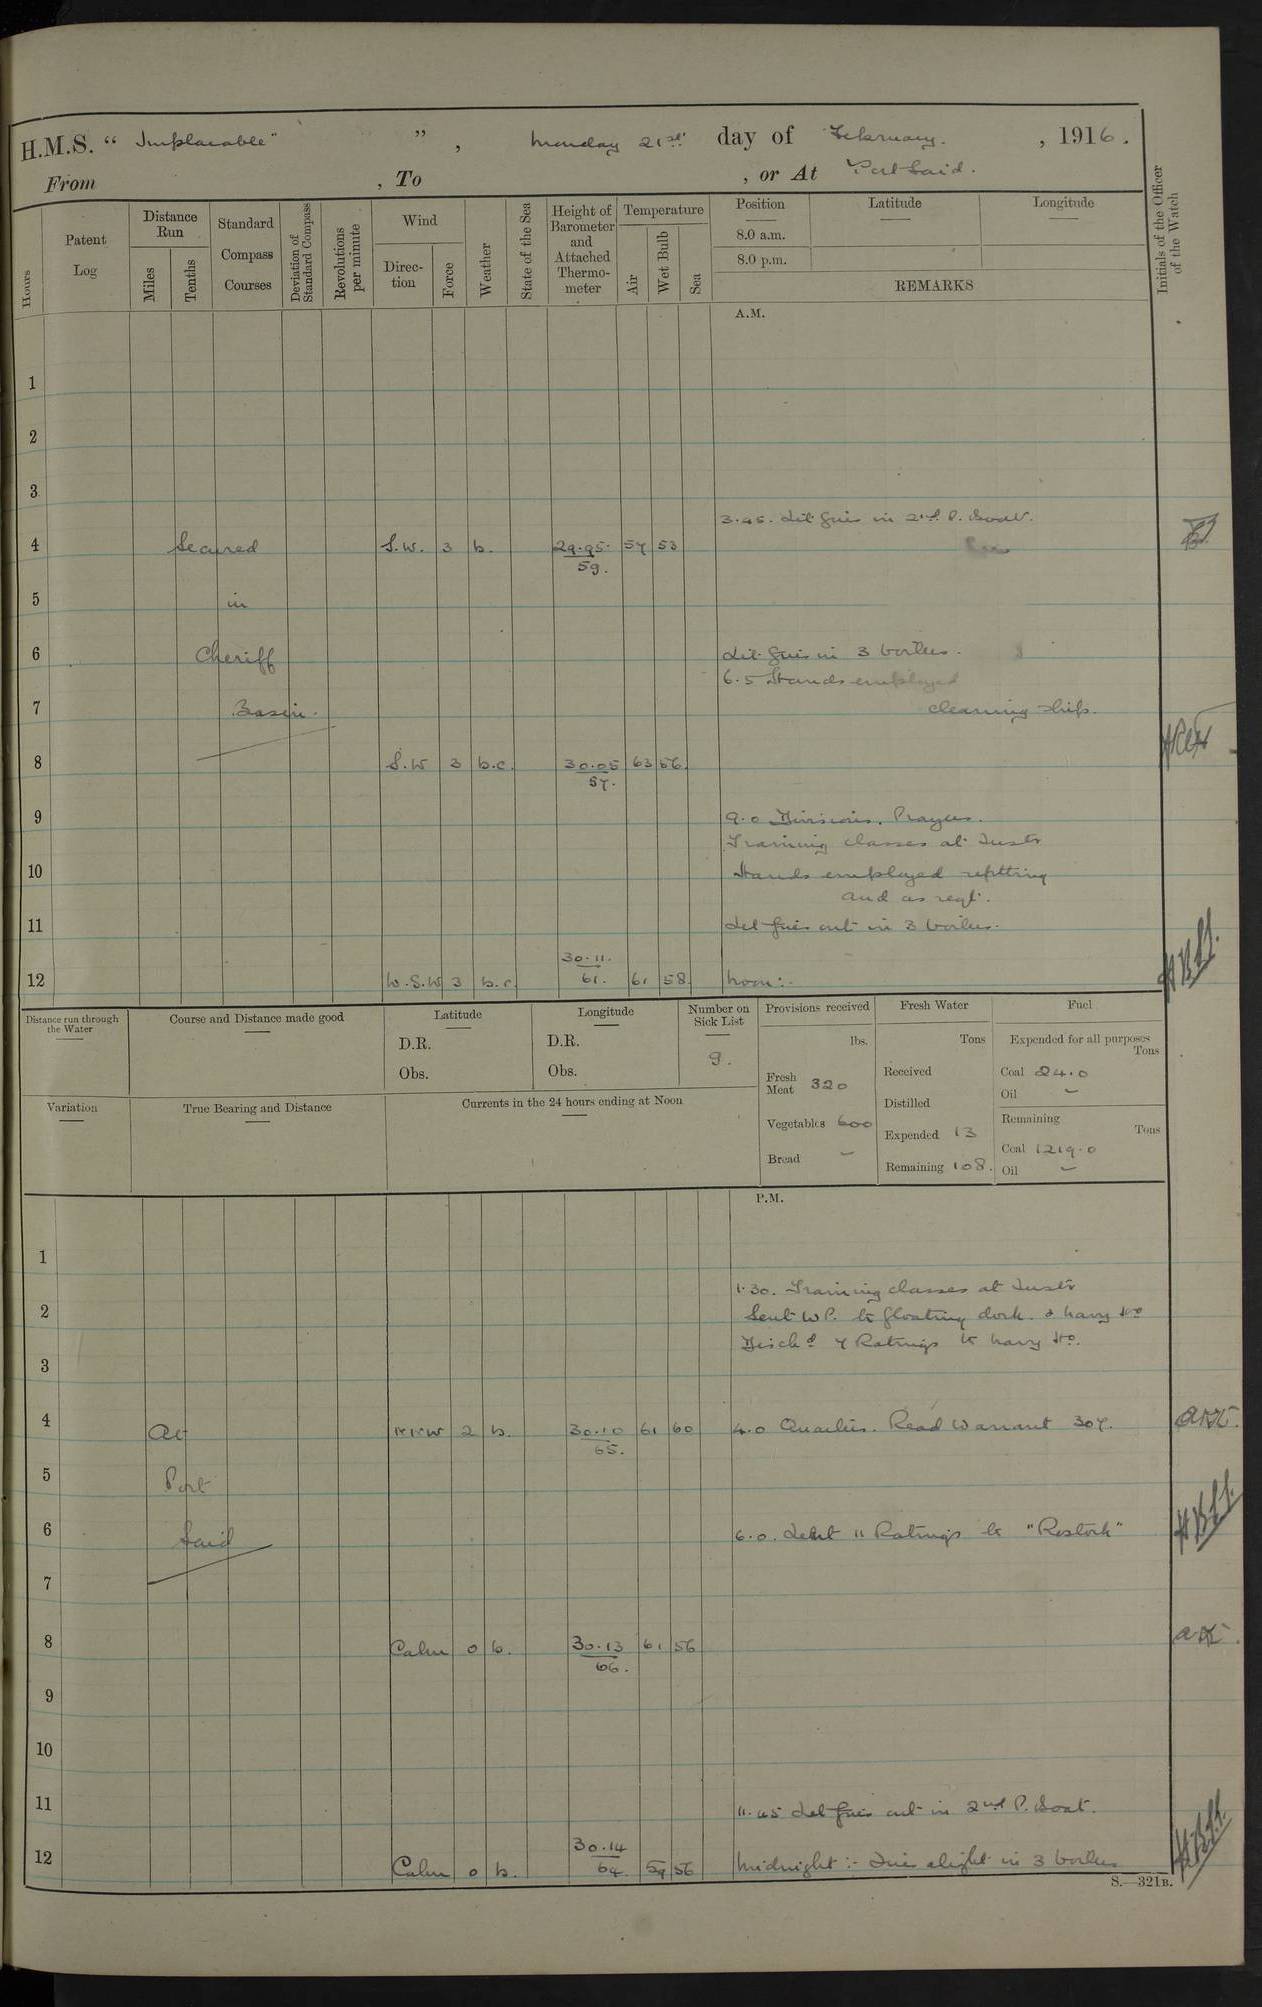 H.M.S. " Implacable " , Monday 21st day of February. , 1916.
From , To , or At Port Said.
Hours
Patent Log
Distance Run
Miles
Tenths
Standard Compass Courses
Deviation of Standard Compass
Revolutions per minute
Wind
Direction
Force
Weather
State of the Sea
Height of Barometer and Attached Thermometer
Temperature
Air
Wet Bulb
Sea
Position
8.0 a.m.
8.0 p.m.
Latitude
Longitude
REMARKS
Initials of the Officer of the Watch
A.M.
1
2
3
3.45. Lit fires in 2nd P. Boat.
4 Secured S.W. 3 b. 29.95 57 53
59.
5 in
6 Cheriff Lit fires in 3 boilers.
6.5 Hands employed
7 Basin. cleaning ship.
8 S.W 3 b.c. 30.05 63 56
57.
9 9.0 Divisions. Prayers.
Training classes at Instr
10 Hands employed refitting
and as reqt.
11 Let fires out in 3 boilers.
30.11.
12 W.S.W 3 b.c. 61. 61 58 Noon:-
Distance run through the Water
Course and Distance made good
Latitude
D.R.
Obs.
Longitude
D.R.
Obs.
Number on Sick List
9.
Provisions received
lbs.
Fresh Meat 320
Vegetables 600
Bread -
Fresh Water
Tons
Received
Distilled
Expended 13
Remaining 108.
Fuel
Expended for all purposes
Tons
Coal 24.0
Oil -
Remaining
Tons
Coal 1219.0
Oil -
Variation
True Bearing and Distance
Currents in the 24 hours ending at Noon
P.M.
1
1.30. Training classes at Instr
2 Sent W.P. to floating dock & Navy Ho
Disch'd 7 Ratings to Navy Ho.
3
4 At NNW 2 b. 30.10 61 60 4.0 Quarters. Read Warrant 307.
65.
5 Port
6 Said 6.0. Lent 11 Ratings to
7
8 Calm 0 b. 30.13 61 56
66.
9
10
11 11.45 Let fires out in 2nd P. Boat.
30.14
12 Calm 0 b. 64. 59 56 Midnight:- Fires alight in 3 boilers
S.—321B.